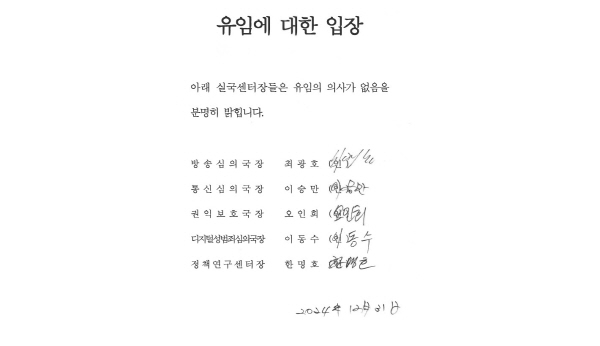 유임에 대한 입장
아래 실국센터장들은 유임의 의사가 없음을
분명히 밝힙니다.
방송심의국장 최광호 (인)
통신심의국장 이승만
권익보호국장 오인희 오인희
디지털성범죄심의국장 이동수 (인) 이동수
정책연구센터장 한명호
2024年 12月 31日